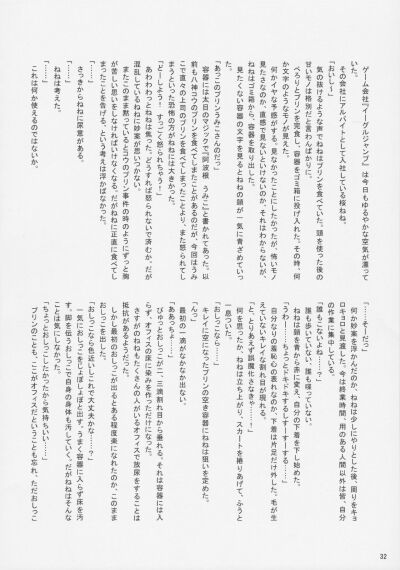 ゲーム会社『イーグルジャンプ』は今日もゆるやかな空気が漂って
いた。
　その会社にアルバイトとして入社している桜ねね。
「おいし〜」
　気の抜けるような声でねねはプリンを食べていた。頭を使った後の
甘いモノは格別だと言わんばかりに。
　ぺろりとプリンを完食し、容器をゴミ箱に投げ入れた。その時、何
か文字のようなモノが見えた。
　何かイヤな予感がする。見なかったことにしたかったが、怖いモノ
見たさなのか、直感で見ないといけないのか、それはわからないが、
ねねはゴミ箱から容器を取り出した。
　見たくない容器の文字を見るとねねの頭が一気に青ざめていっ
た。
「あっこのプリンうみこさんのだっ」
　容器には太目のマジックで『阿波根　うみこ』と書かれてあった。以
前も八神コウのプリンを食べてしまったことがあるのだが、今回はうみ
こで直々の上司のプリンを食べてしまったことより、また怒られてし
まうといった恐怖の方がねねには大きかった。
「どーしよう！　すっごく怒られちゃう！」
　あわわわっとねねは焦った。どうすれば怒られないで済むか。だが
混乱しているねねに妙案が思いつかない。
　またこのまま黙っているとコウのプリン事件の時のようにずっと胸
が苦しい思いをしなければいけなくなる。だがねねに正直に食べて
しまったことを告げる、という考えは浮かばなかった。
「……」
　さっきからねねに尿意がある。
「……」
　ねねは考えた。
　これは何か使えるのではないか。
「……そーだっ」
　何か妙案が浮かんだのか、ねねは少しにやりとした後、周りをキョ
ロキョロと見渡した。今は終業時間。用のある人間以外は皆、自分
の作業に集中している。
「誰もこないよね……？」
　誰も歩いていない、誰も喋っていない。
　ねねは顔を青から赤に変え、自分の下着を下し始めた。
「うわー……ちょっとドキドキするしすーすーする……」
　自分なりの羞恥心の表れなのか、下着は片足だけ外した。毛が生
えていないキレイな割れ目が現れる。
「と、とりあえず誤魔化さなきゃ……！」
　何を思ったか、ねねは立ち上がり、スカートを捲りあげて、ふうと
一息ついた。
「おしっこなら……」
　キレイに空になったプリンの空き容器にねねは狙いを定めた。
「んっ……」
　最初の一滴がなかなか出ない。
「ああっちょ……」
　ぴゅっとおしっこが二、三滴割れ目から垂れる。それは容器には入
らず、オフィスの床に染みを作っただけになった。
　さすがのねねもたくさんの人がいるオフィスで放尿をすることは
抵抗があるようだった。
　しかし最初のおしっこが出るとある程度楽になれたのか、このまま
おしっこを出した。
「おしっこなら色近いしこれで大丈夫かな……？」
　一気におしっこをじょぼじょぼと出す。うまく容器に入らず床を汚
す。脚を伝うおしっこで自身の身体も汚していく。だがねねはそんな
ことは気にしなかった。
「ちょっとおしっこしたかったから気持ちいい……」
　プリンのことも、ここがオフィスだということも忘れ、ただおしっこ
32